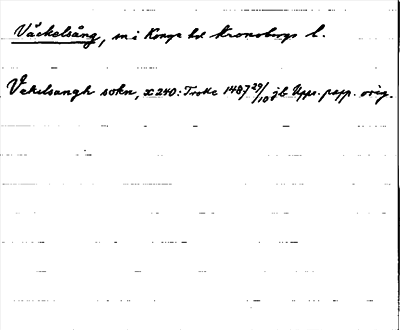 Väckelsång, sn i Konga hd Kronobergs l.
Vekelsangh sokn, x 240: Trotte 1487 29/10 jb. Upps. papp. orig.